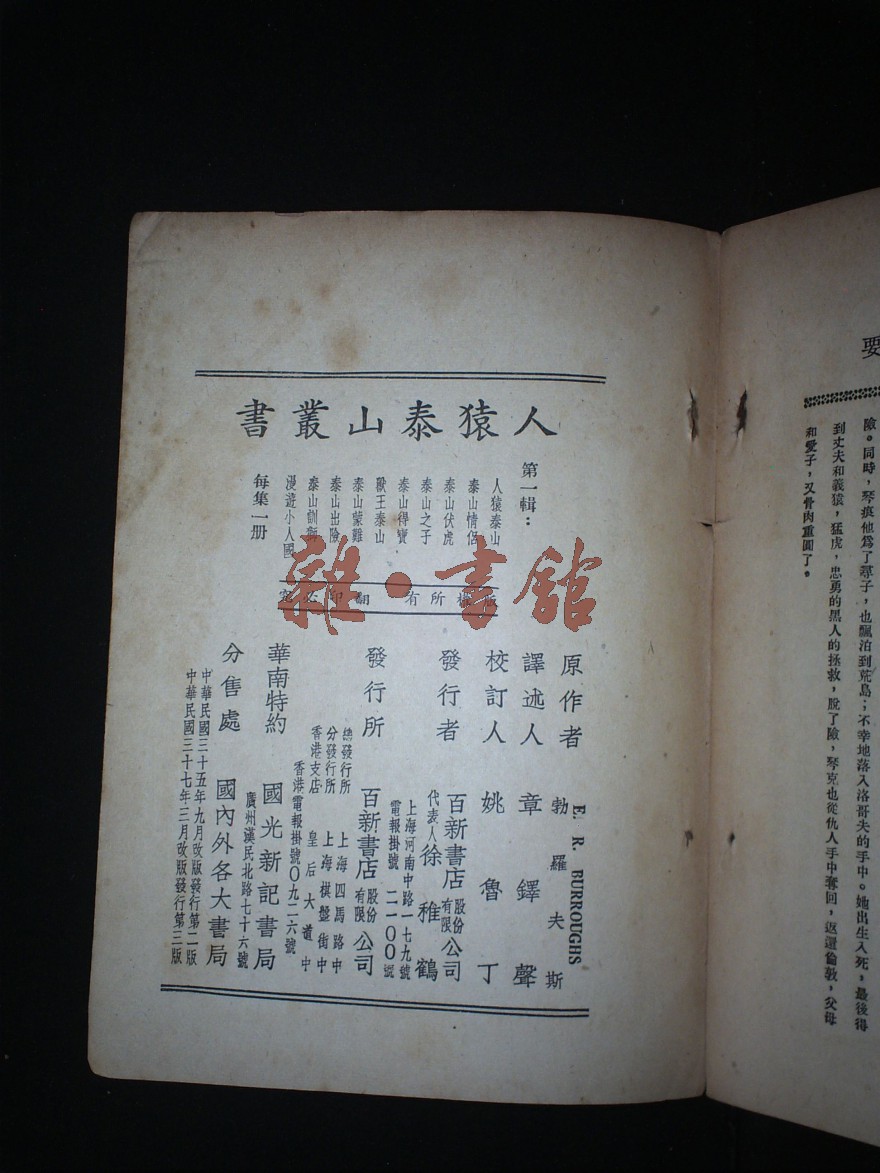 人猿泰山叢書
第一輯：
人猿泰山
泰山情侶
泰山伏虎
泰山之子
泰山得寶
獸王泰山
泰山蒙難
泰山出險
泰山馴獅
漫遊小人國
每集一册
版權所有
翻印必究
雜·書館
原作者
E. R. BURROUGHS
勃羅夫斯
譯述人 章鐸聲
校訂人 姚魯丁
發行者 百新書店股份有限公司
代表人 徐稚鶴
上海河南中路一七九號
電報掛號 二一〇〇號
發行所 百新書店股份有限公司
總發行所 上海四馬路中
分發行所 上海棋盤街中
香港支店 皇后大道中
香港電報掛號〇九二六號
華南特約 國光新記書局
廣州漢民北路七十六號
分售處 國內外各大書局
中華民國三十五年九月改版發行第二版
中華民國三十七年三月改版發行第三版
要
險。同時，琴痕他爲了尋子，也飄泊到荒島；不幸地落入洛哥夫的手中。她出生入死，最後得
到丈夫和義猿，猛虎，忠勇的黑人的拯救，脫了險，琴克也從仇人手中奪回，返還倫敦，父母
和愛子，又骨肉重圓了。